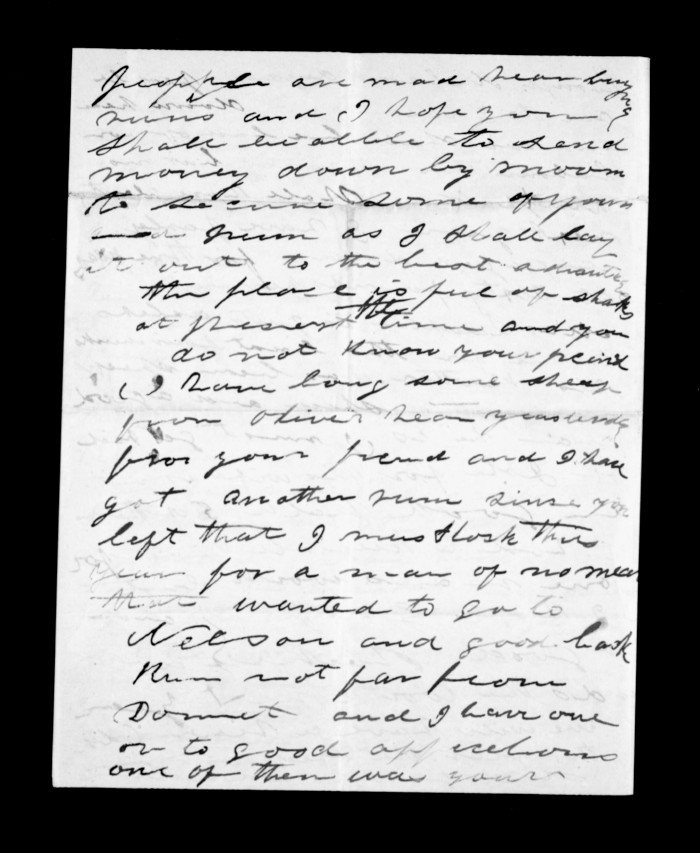 people are mad hear buying
runs and I hope you
shall be allble to send
money down by moom
to secure some of your
rum as I shall lay
it out to the best advantage
the place is full of sharks
at present the time and you
do not know your freind
I have bong some sheep
from Oliver hear yeasterdy
for your freud and I have
got another rum sinse you
left that I must stock this
year for a man of no mear
that wanted to go to
Nelson and good back
Rum not far from
Dommet and I have one
or to good applications
one of them was your